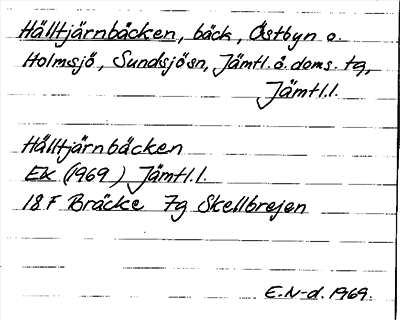 Hälltjärnbäcken, bäck, Östbyn o.
Holmsjö, Sundsjösn, Jämtl. ö. doms. tg,
Jämtl.l.
Hälltjärnbäcken
Ek (1969) Jämtl.l.
18 F Bräcke 7g Skellbrejen
E.N-d. 1969.